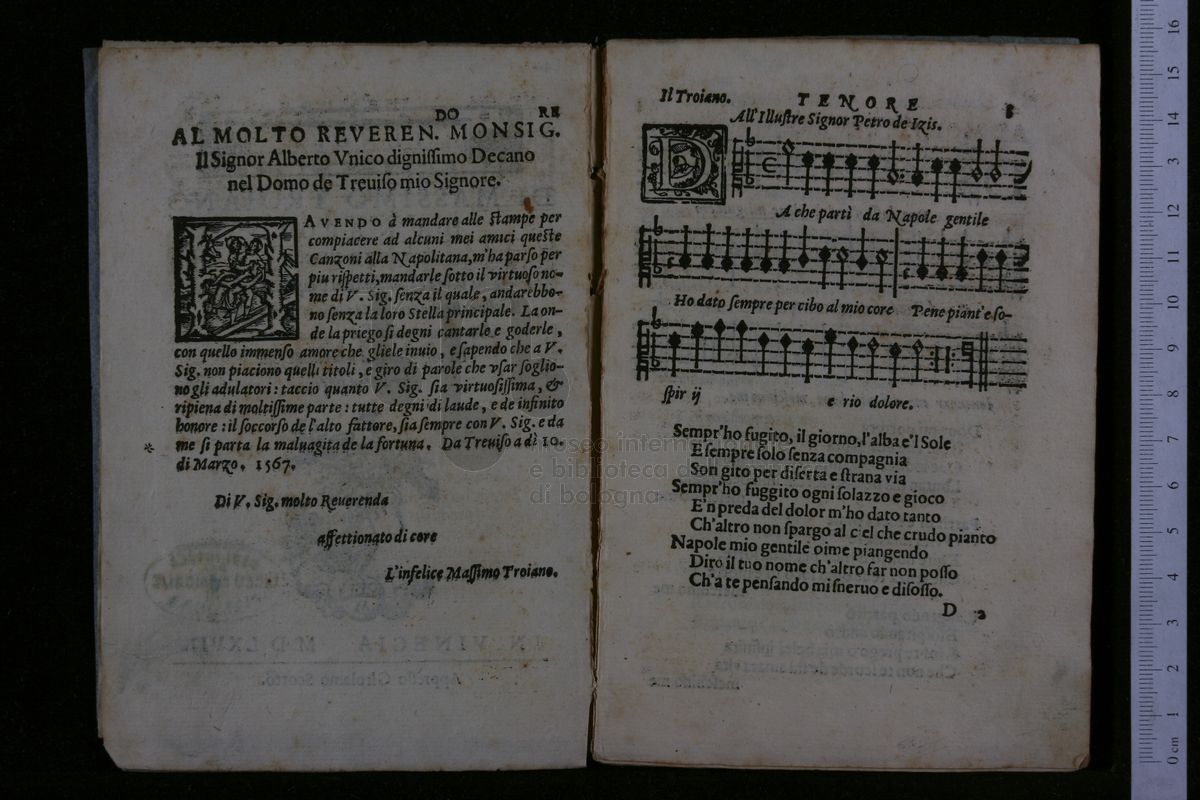 DO RE
AL MOLTO REVEREN. MONSIG.
Il Signor Alberto Vnico dignissimo Decano
nel Domo de Treuiso mio Signore.
AVENDO à mandare alle stampe per
compiacere ad alcuni mei amici queste
Canzoni alla Napolitana, m'ha parso per
piu rispetti, mandarle sotto il virtuoso no-
me di V. Sig. senza il quale, andarebbo-
no senza la loro Stella principale. La on-
de la priego si degni cantarle e goderle,
con quello immenso amore che gliele inuio, e sapendo che a V.
Sig. non piaciono quelli titoli, e giro di parole che vsar soglio-
no gli adulatori: taccio quanto V. Sig. sia virtuosissima, &
ripiena di moltissime parte: tutte degni di laude, e de infinito
honore: il soccorso de l'alto fattore, sia sempre con V. Sig. e da
me si parta la maluagita de la fortuna. Da Treuiso a dì 10.
di Marzo. 1567.
Di V. Sig. molto Reuerenda
affettionato di core
L'infelice Massimo Troiano.
Il Troiano. TENORE
All'Illustre Signor Petro de Izis.
DA che partì da Napole gentile
Ho dato sempre per cibo al mio core Pene piant'e so-
spir ij e rio dolore.
Sempr'ho fugito, il giorno, l'alba e'l Sole
E sempre solo senza compagnia
Son gito per diserta e strana via
Sempr'ho fuggito ogni solazzo e gioco
E'n preda del dolor m'ho dato tanto
Ch'altro non spargo al ciel che crudo pianto
Napole mio gentile oime piangendo
Diro il tuo nome ch'altro far non posso
Ch'a te pensando mi sneruo e disosso.
D 2
museo internazionale
e biblioteca della musica
di bologna
0 cm 1 2 3 4 5 6 7 8 9 10 11 12 13 14 15 16